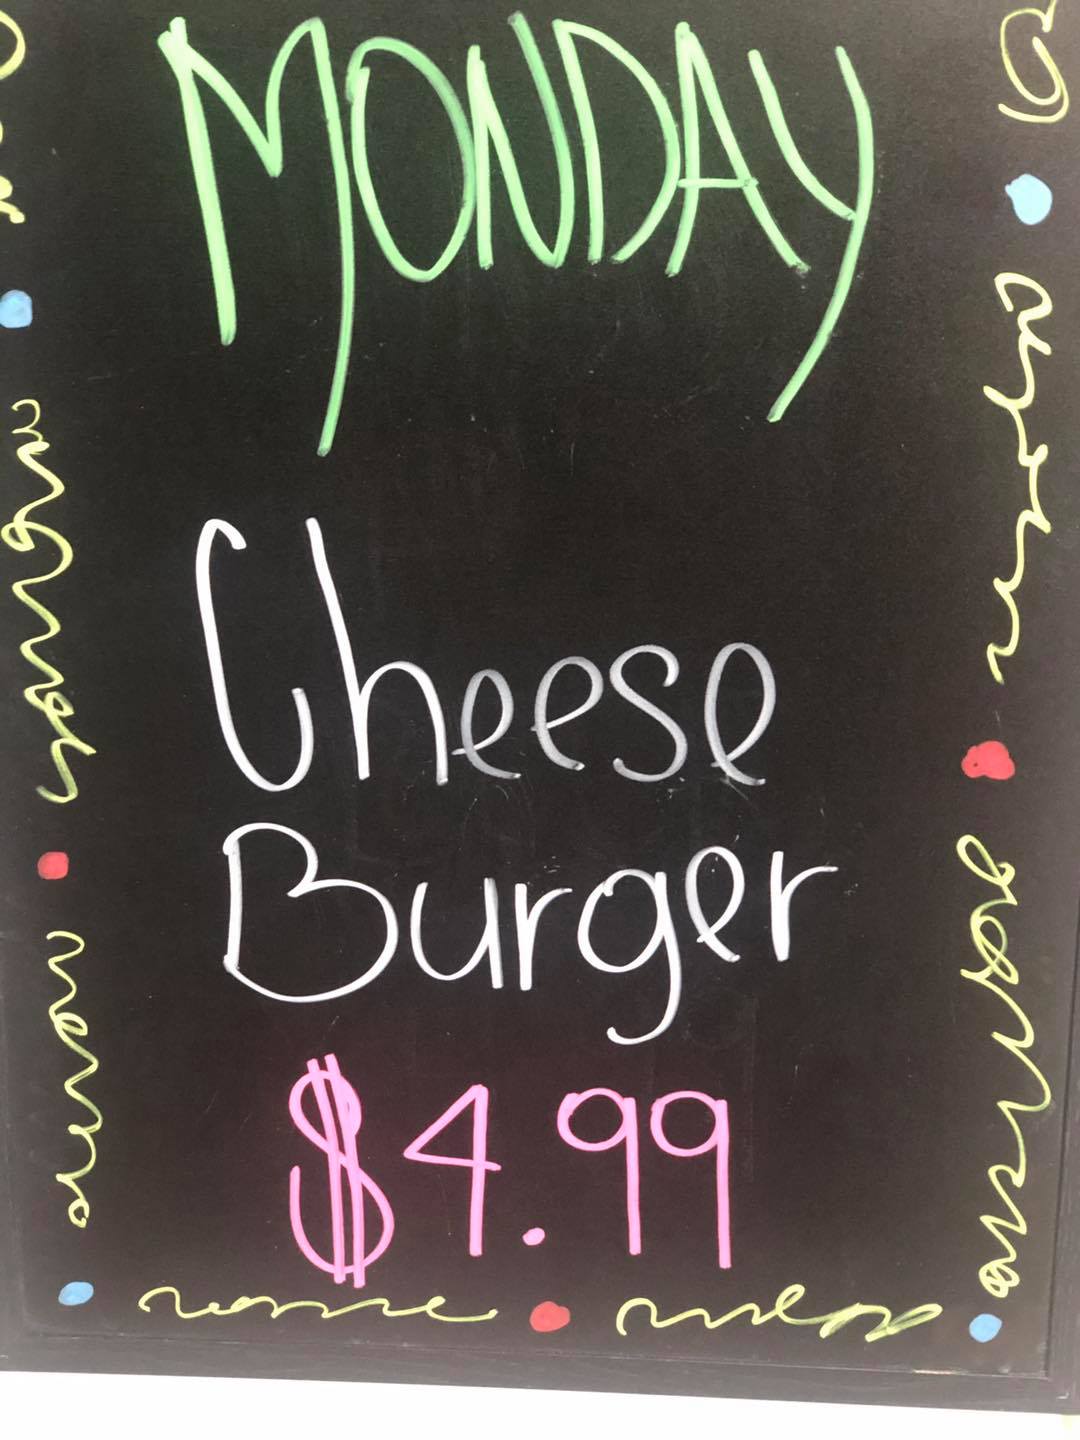 MONDAY
Cheese
Burger
$4.99